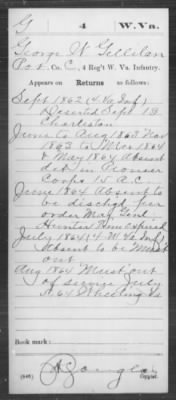 G 4 W.Va.
George W Gillilan
Pvt, Co. C, 4 Reg't W. Va. Infantry.
Appears on Returns as follows:
Sept 1862 (4 Va Inf)
Deserted Sept 13
Charleston
June to Aug 1863 Nov
1863 to Mar 1864
& May 1864 Absent
det in Pioneer
Corps 15 A.C.
June 1864 Absent to
be dischgd per
order Maj Genl
Hunter time expired
July 1864 (4 W Va Inf)
Absent to be Must
out
Aug 1864 Must out
of service July
1864 Wheeling Va
Book mark:
(646) Copyist.